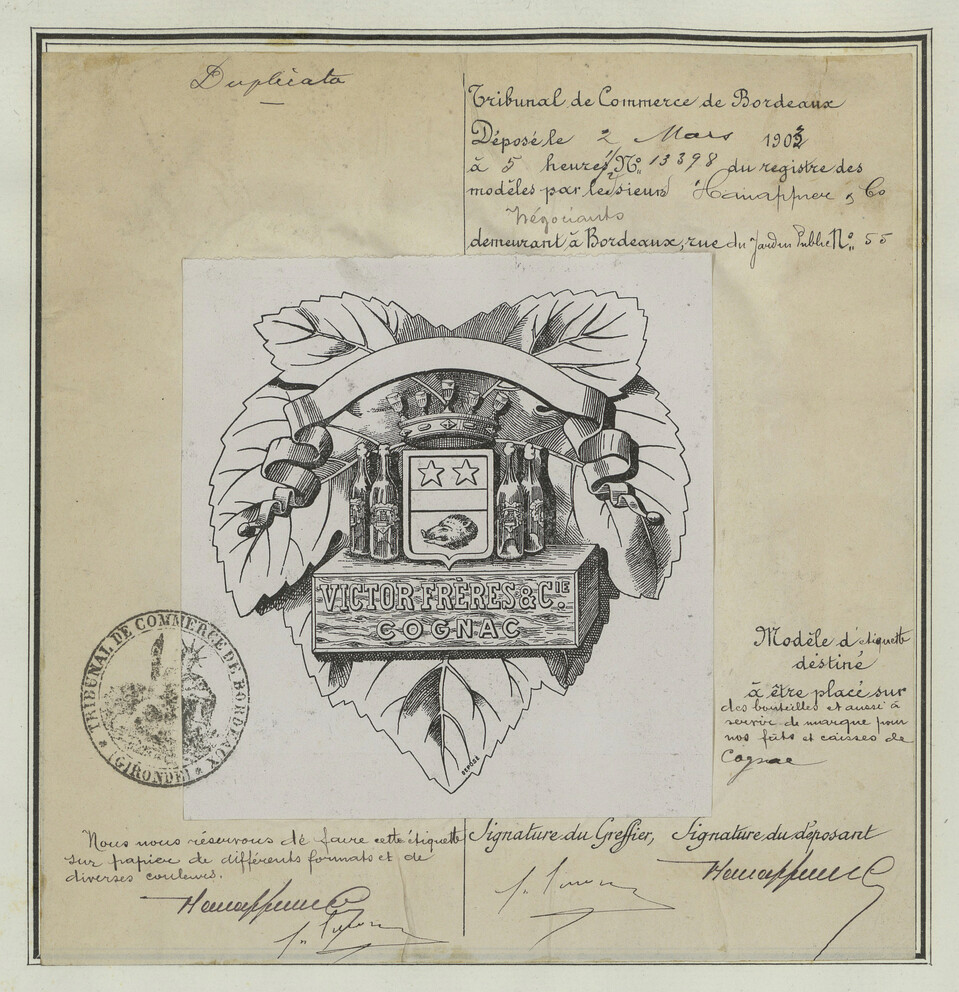 Duplicata
Tribunal de Commerce de Bordeaux
Déposé le 2 Mars 1903
à 5 heures ½ No. 13398 du registre des
modèles par le sieurs Hanappier & Co
Négociants
demeurant à Bordeaux, rue du Jardin Public No. 55
VICTOR FRÈRES & CIE.
COGNAC
DÉPOSÉ
TRIBUNAL DE COMMERCE DE BORDEAUX
(GIRONDE)
Modèle d'étiquette
destiné
à être placé sur
des bouteilles et aussi à
servir de marque pour
nos fûts et caisses de
Cognac
Nous nous réservons de faire cette étiquette
sur papier de différents formats et de
diverses couleurs.
Signature du Greffier, Signature du déposant